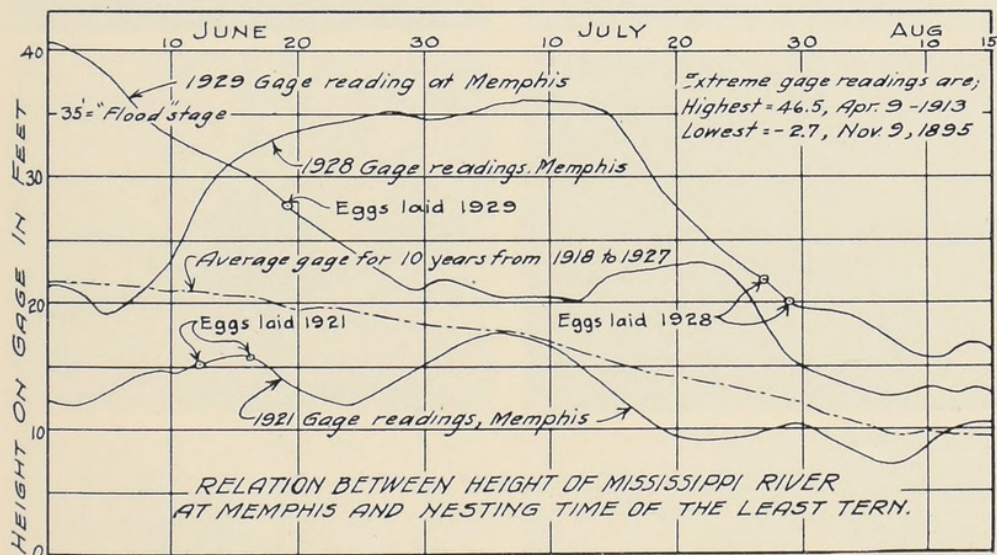 JUNE JULY AUG
10 20 30 10 20 30 10 15
40
30
20
10
0
HEIGHT ON GAGE IN FEET
1929 Gage reading at Memphis
35'= "Flood" stage
Extreme gage readings are;
Highest = 46.5, Apr. 9-1913
Lowest = -2.7, Nov. 9, 1895
1928 Gage readings. Memphis
Eggs laid 1929
Average gage for 10 years from 1918 to 1927
Eggs laid 1921
Eggs laid 1928
1921 Gage readings, Memphis
RELATION BETWEEN HEIGHT OF MISSISSIPPI RIVER
AT MEMPHIS AND NESTING TIME OF THE LEAST TERN.